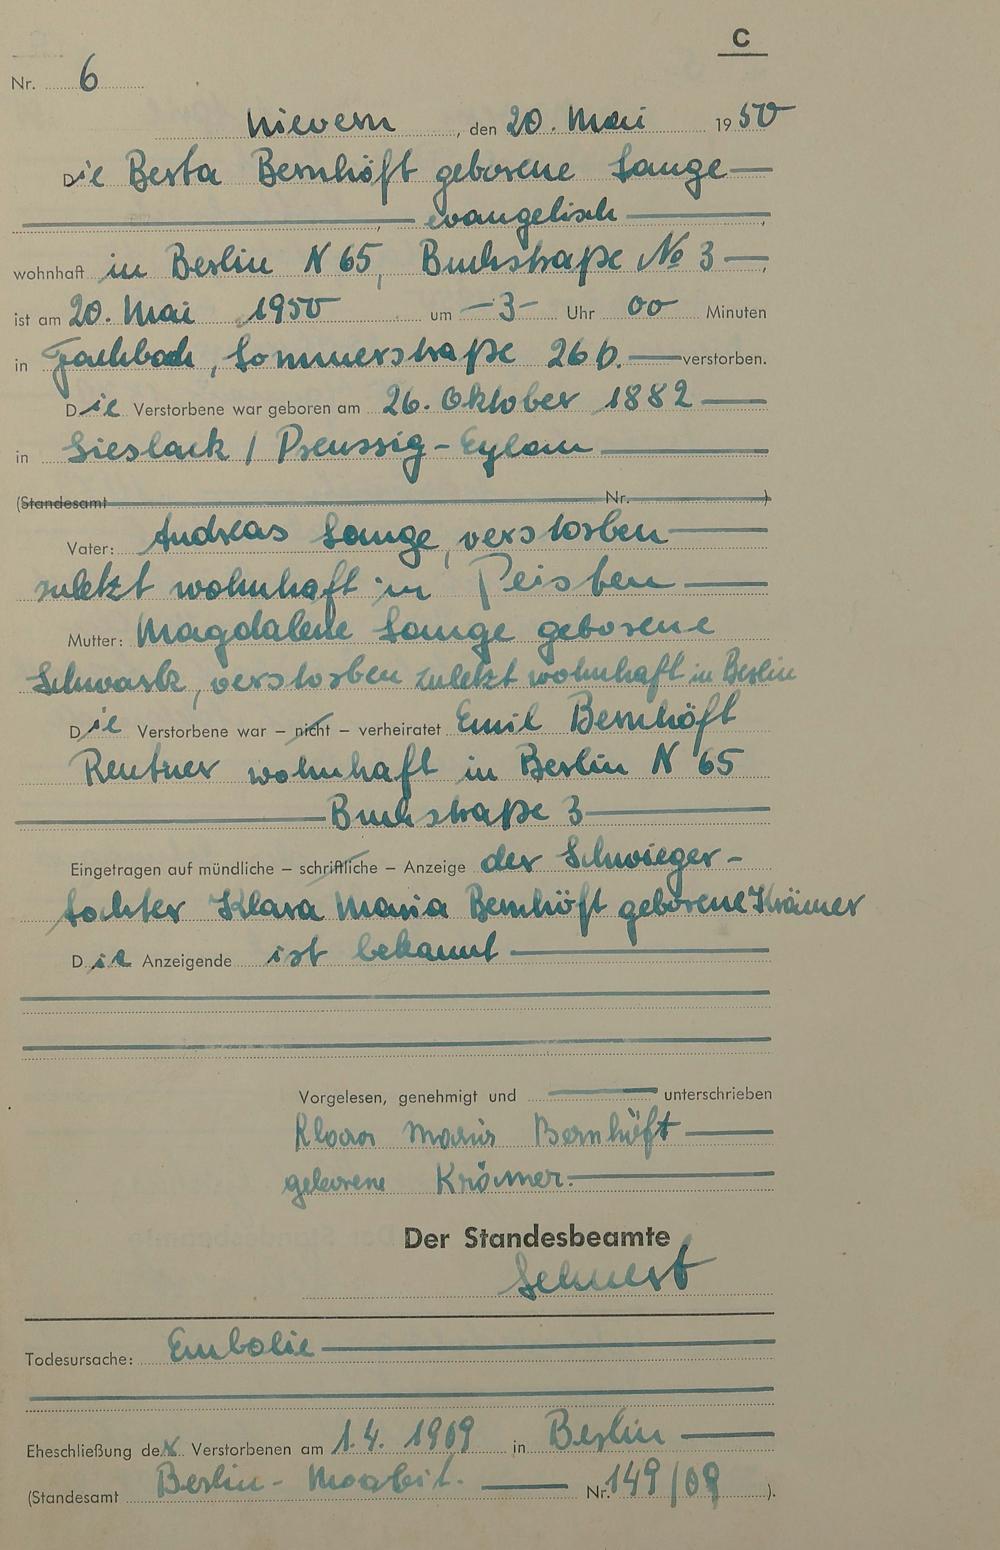 C
Nr. 6
Nievern, den 20. Mai 1950
Die Berta Bernhöft geborene Lange
evangelisch
wohnhaft in Berlin N 65, Buchstraße No 3
ist am 20. Mai 1950 um -3- Uhr 00 Minuten
in Fachbach, Sommerstraße 26 b. verstorben.
Die Verstorbene war geboren am 26. Oktober 1882
in Lieslack / Preussig-Eylau
(Standesamt Nr. )
Vater: Andreas Lange, verstorben
zuletzt wohnhaft in Peisten
Mutter: Magdalene Lange geborene
Schwartz, verstorben zuletzt wohnhaft in Berlin
Die Verstorbene war – nicht – verheiratet Emil Bernhöft
Rentner wohnhaft in Berlin N 65
Buchstraße 3
Eingetragen auf mündliche – schriftliche – Anzeige der Schwieger-
tochter Klara Maria Bernhöft geborene Krämer
Die Anzeigende ist bekannt
Vorgelesen, genehmigt und unterschrieben
Klara Maria Bernhöft
geborene Krämer.
Der Standesbeamte
Todesursache: Embolie
Eheschließung der Verstorbenen am 1.4. 1909 in Berlin
(Standesamt Berlin-Moabit. Nr. 149/09 ).